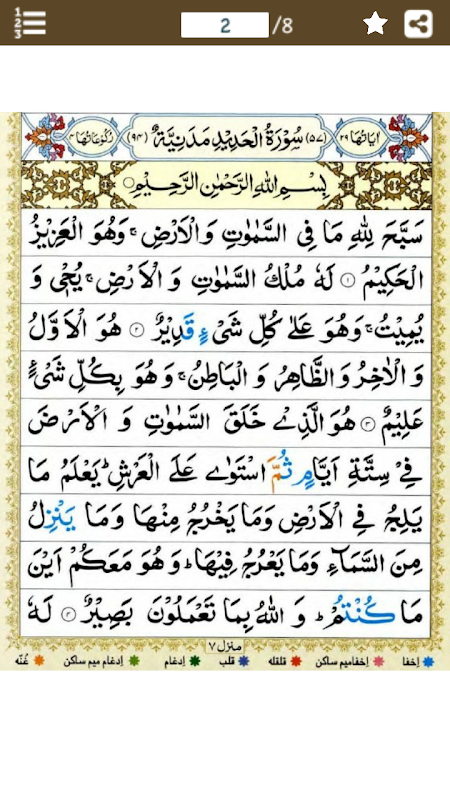 1
2
3
2 /8
اٰیَاتُهَا ۲۹ (۵۷) سُوْرَةُ الْحَدِیْدِ مَدَنِیَّةٌ (۹۴) رُكُوْعَاتُهَا ۴
بِسْمِ اللهِ الرَّحْمٰنِ الرَّحِیْمِ
سَبَّحَ لِلّٰهِ مَا فِی السَّمٰوٰتِ وَالْاَرْضِ ۚ وَهُوَ الْعَزِیْزُ
الْحَكِیْمُ ۝۱ لَهٗ مُلْكُ السَّمٰوٰتِ وَ الْاَرْضِ ۚ یُحْیٖ وَ
یُمِیْتُ ۚ وَهُوَ عَلٰی كُلِّ شَیْءٍ قَدِیْرٌ ۝۲ هُوَ الْاَوَّلُ
وَ الْاٰخِرُ وَ الظَّاهِرُ وَ الْبَاطِنُ ۚ وَ هُوَ بِكُلِّ شَیْءٍ
عَلِیْمٌ ۝۳ هُوَ الَّذِیْ خَلَقَ السَّمٰوٰتِ وَ الْاَرْضَ
فِیْ سِتَّةِ اَیَّامٍ ثُمَّ اسْتَوٰی عَلَی الْعَرْشِ ؕ یَعْلَمُ مَا
یَلِجُ فِی الْاَرْضِ وَمَا یَخْرُجُ مِنْهَا وَمَا یَنْزِلُ
مِنَ السَّمَآءِ وَمَا یَعْرُجُ فِیْهَا ؕ وَ هُوَ مَعَكُمْ اَیْنَ
مَا كُنْتُمْ ؕ وَ اللهُ بِمَا تَعْمَلُوْنَ بَصِیْرٌ ۝۴ لَهٗ
منزل ۷
اِخفا اِخفامیم ساکن قلقله قلب اِدغام اِدغام میم ساکن غُنّه